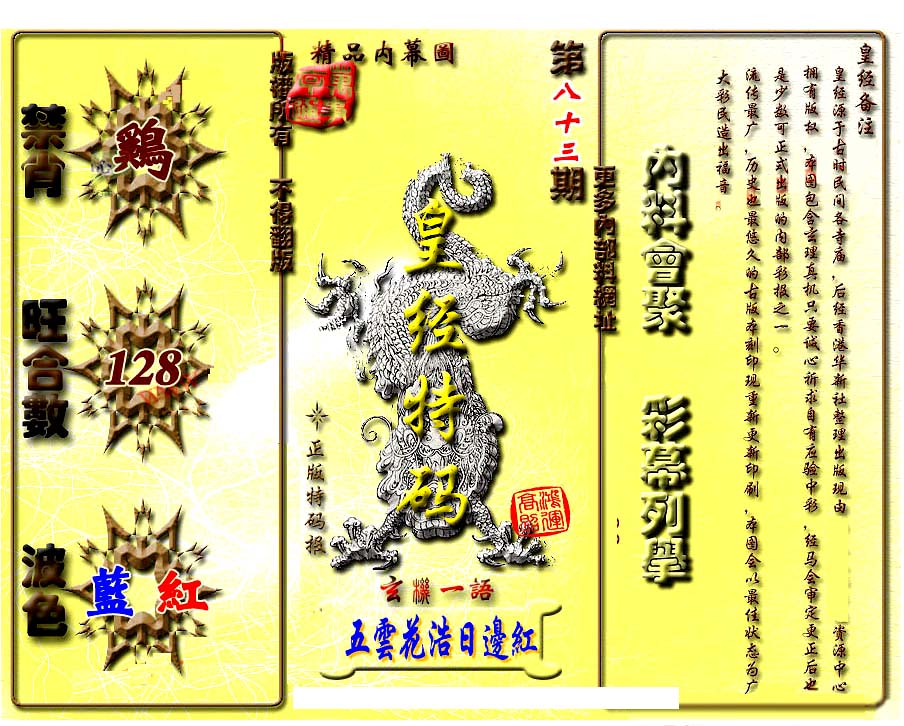 精品内幕圖
第八十三期
版權所有 不得翻版
更多內部料網址
禁肖
鷄
旺合數
128
波色
藍 紅
皇经特码
正版特码报
鴻運高照
玄機一語
五雲花浩日邊紅
內料會聚 彩幕列舉
皇经备注
皇经源于古时民间各寺庙，后经香港华新社整理出版现由 资源中心
拥有版权，本图包含玄理真机只要诚心祈求自有应验中彩，经马会审定更正后也
是少数可正式出版的内部彩报之一。
流传最广，历史也最悠久的古版本刻印现重新更新印刷，本图会以最佳状态为广
大彩民造出福音